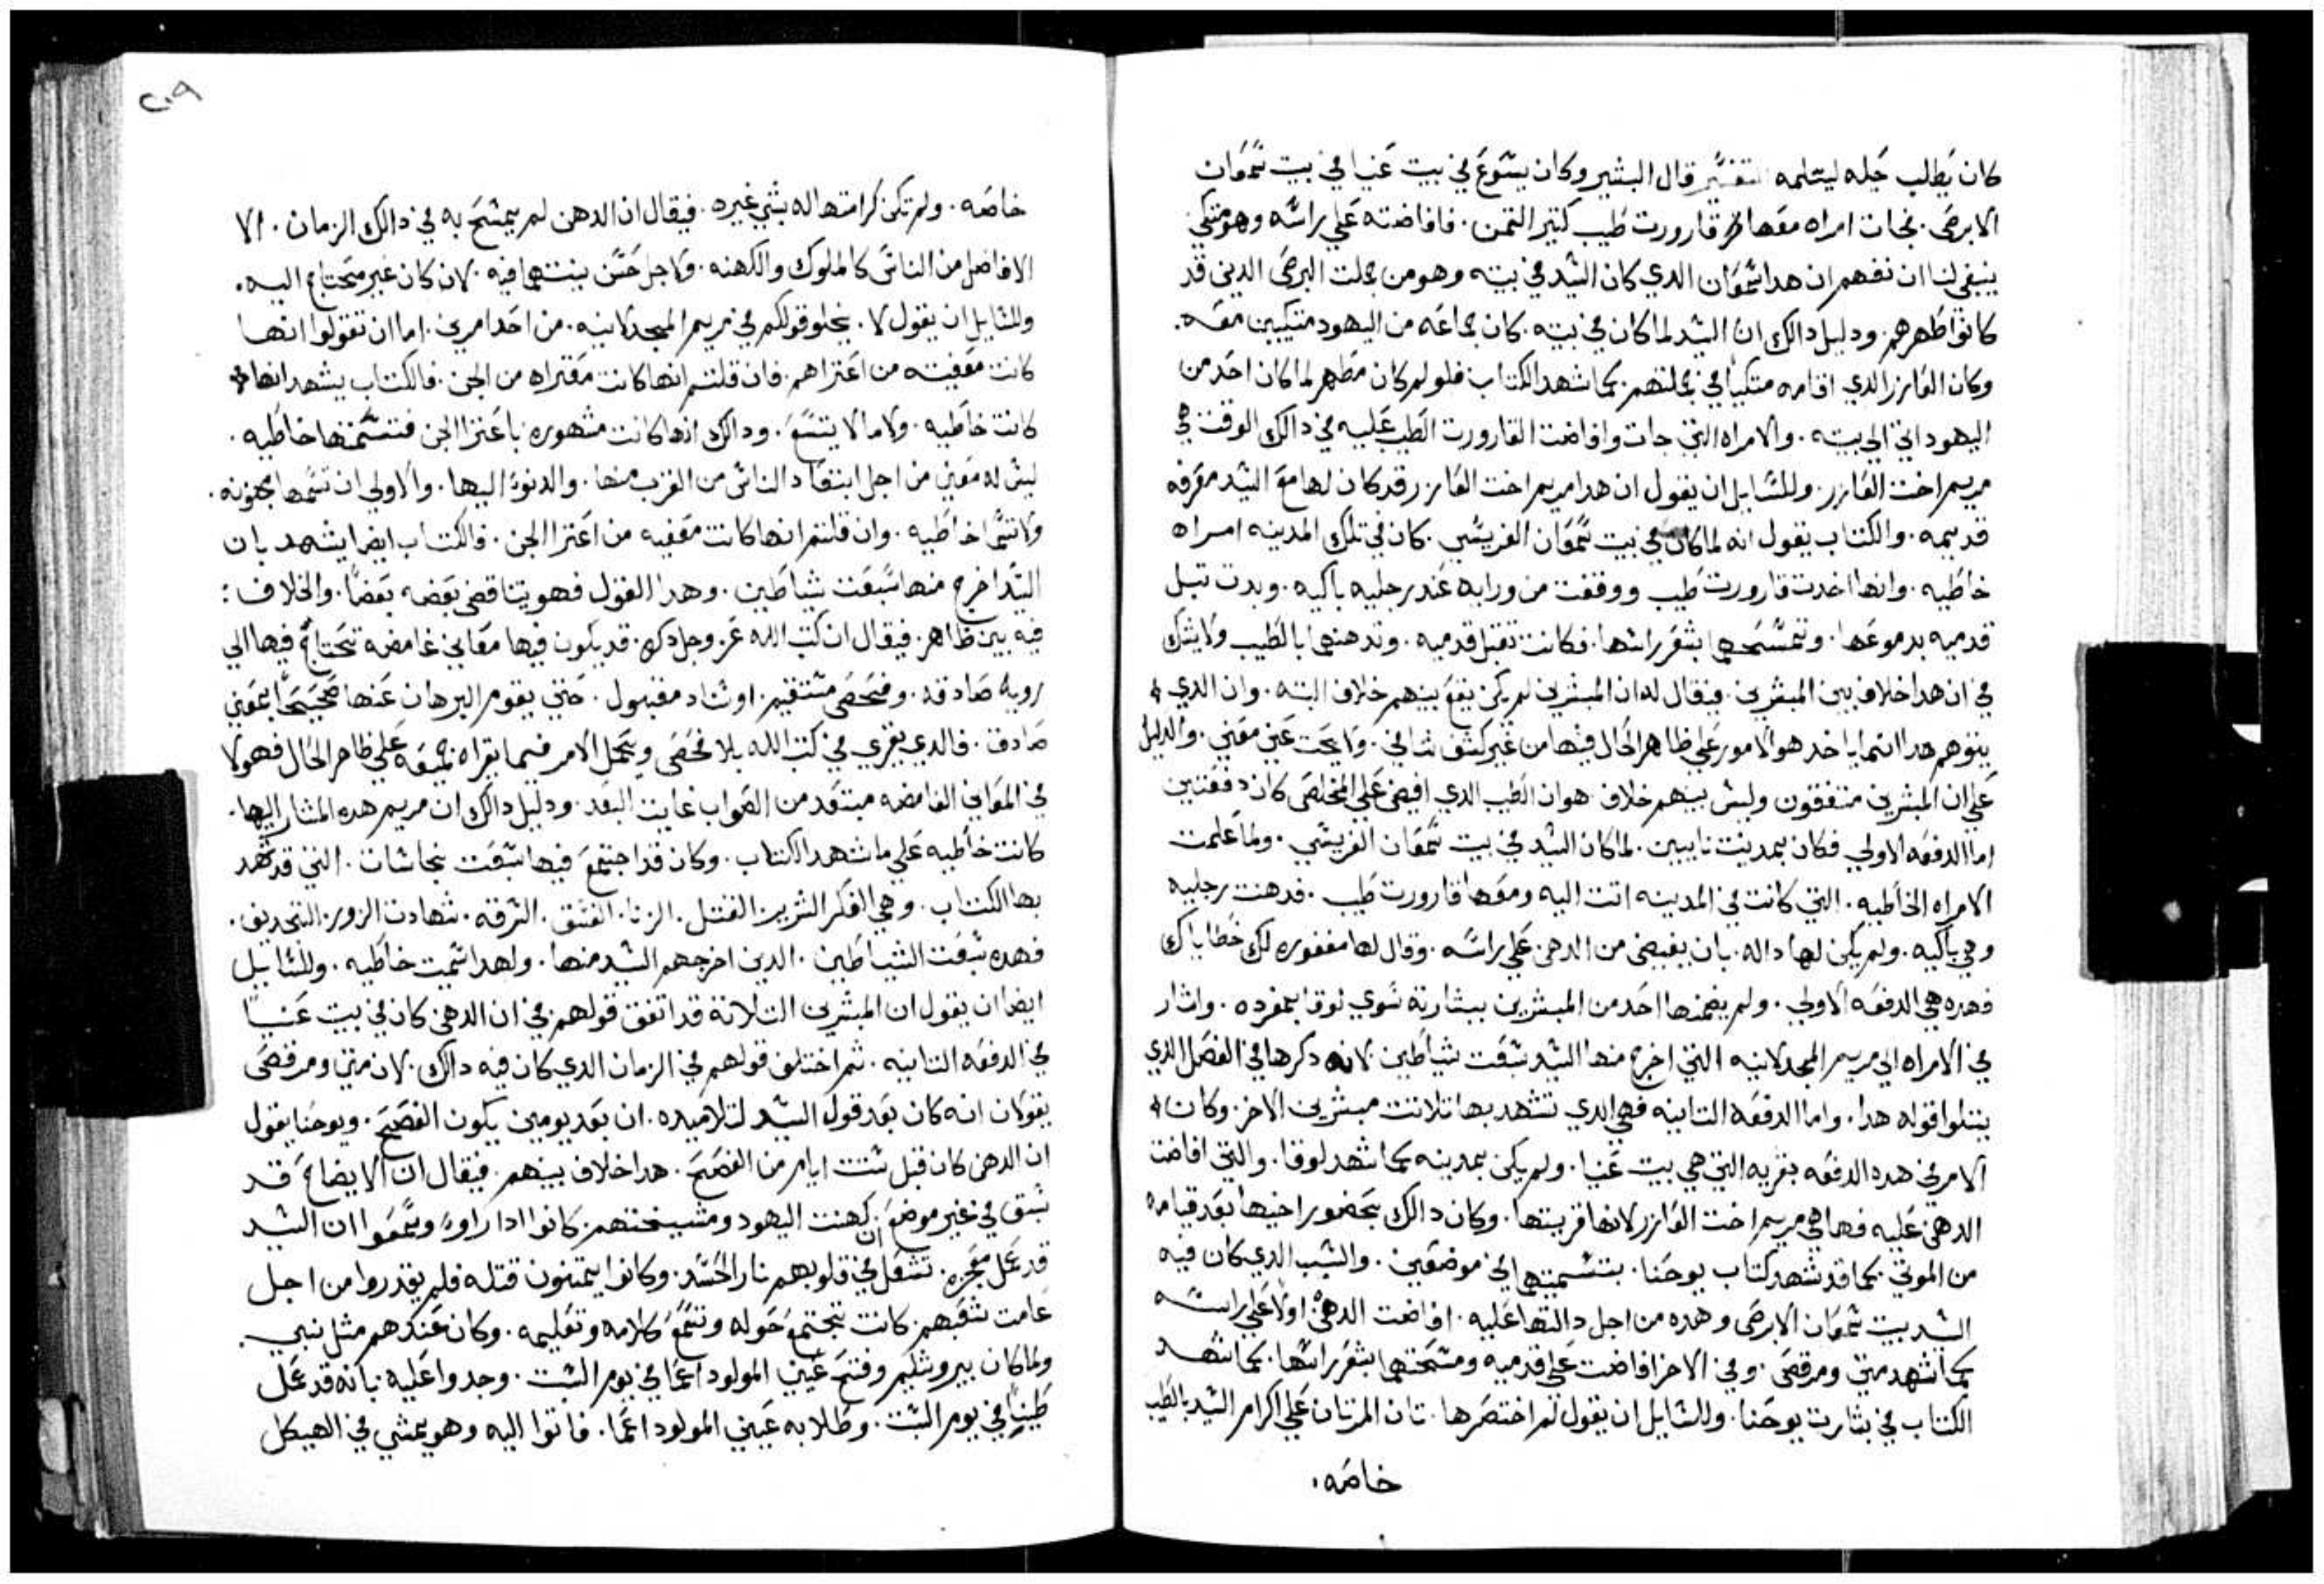 كان يطلب حيله ليسلمه التفسير قال البشير وكان يسوع في بيت عنيا في بيت سمعان
الابرص. فجات امراه معها قارورت طيب كتير التمن. فافاضته علي راسه وهو متكي
ينبغي لنا ان نفهم ان هدا سمعان الدي كان السيد في بيته وهو من جملت البرص الدين قد
كانوا طهرهم. ودليل دالك ان السيد لما كان في بيته. كان جماعه من اليهود متكيين معه.
وكان العازر الدي اقامه متكيا في جملتهم. كما شهد الكتاب فلو لم كان مطهر لما كان احد من
اليهود اتي الي بيته. والامراه التي جات وافاضت القارورت الطيب عليه في دالك الوقت هي
مريم اخت العازر. وللسايل ان يقول ان هدا مريم اخت العازر قد كان لها مع السيد معرفه
قديمه. والكتاب يقول انه لما كان في بيت سمعان الفريسي. كان في تلك المدينه امراه
خاطيه. وانها اخدت قارورت طيب ووقفت من ورايه عند رجليه باكيه. وبدت تبل
قدميه بدموعها. وتمسحهما بشعر راسها. فكانت تقبل قدميه. وتدهنهما بالطيب ولا يشك
في ان هدا خلاف بين المبشرين. فيقال له ان المبشرين لم يكن يقع بينهم خلاف البته. وان الدي
يتوهم هدا انما ياخد هولا الامور علي ظاهر الحال فيها من غير كشف شافي. ولا بحت عن معني. والدليل
علي ان المبشرين متفقون وليس بينهم خلاف هو ان الطيب الدي افيض علي المخلص كان دفعتين
اما الدفعه الاولي فكان بمدينت نايين. لما كان السيد في بيت سمعان الفريسي. ولما علمت
الامراه الخاطيه. التي كانت في المدينه اتت اليه ومعها قارورت طيب. فدهنت رجليه
وهي باكيه. ولم يكن لها داله. بان يفيض من الدهن علي راسه. وقال لها مغفوره لك خطاياك
فهده هي الدفعه الاولي. ولم يضمنها احد من المبشرين ببشارته سوي لوقا بمفرده. واشار
في الامراه الي مريم المجدلانيه التي اخرج منها السيد سبعت شياطين لانه دكرها في الفصل الدي
يتلوا قوله هدا. واما الدفعه التانيه فهي الدي تشهد بها تلاتت مبشرين الاخر. وكان
الامر في هده الدفعه بقريه التي هي بيت عنيا. ولم يكن بمدينه كما شهد لوقا. والتي افاضت
الدهن عليه فهاهي مريم اخت العازر لانها قريتها. وكان دالك بحضور اخيها بعد قيامه
من الموتي. كما قد شهد كتاب يوحنا. بتسميتها في موضعين. والسبب الدي كان فيه
السيد بيت سمعان الابرص وهده من اجل دالتها عليه. افاضت الدهن اولا علي راسه
كما شهد متي ومرقص. وفي الاخر افاضت علي قدميه ومسحتهما بشعر راسها. كما شهد
الكتاب في بشارت يوحنا. وللسايل ان يقول لم اختصرها. تان المرتان علي اكرام السيد بالطيب
خاصه.
٢٠٩
خاصه. ولم تكن كرامتها له بشي غيره. فيقال ان الدهن لم يمسح به في دالك الزمان. الا
الافاضل من الناس كالملوك والكهنه. ولاجل حسن بنيتهما فيه. لان كان غير محتاج اليه.
وللسايل ان يقول لا. يخلو قولكم في مريم المجدلانيه. من احد امرين. اما ان تقولوا انها
كانت معفيه من اعتراهم. فان قلتم انها كانت معتراه من الجن. فالكتاب يشهد انها
كانت خاطيه. ولاما لا يتسع. ودالك انها كانت مشهوره باعترا الجن فتسمتها خاطيه.
ليس له معني من اجل ابتعاد الناس من القرب منها. والدنوا اليها. والاولي ان تسمها مجنونه.
ولا تسما خاطيه. وان قلتم انها كانت معفيه من اعترا الجن. فالكتاب ايضا يشهد بان
السيد اخرج منها سبعت شياطين. وهدا القول فهو يتناقض بعضه بعضا. والخلاف:
فيه بين ظاهر. فيقال ان كتب الله عز وجل دكره. قد يكون فيها معاني غامضه تحتاج فيها الي
رويه صادقه. وفحص مستقيم. او شاد مقبول. حتي يقوم البرهان عنها صحيحا بمعني
صادق. فالدي يقري في كتب الله بلا فحص ويحمل الامر فيما يقراه جميعه علي ظاهر الحال فهولا
في المعاني الغامضه مبتعد من الصواب غايت البعد. ودليل دالك ان مريم هده المشار اليها.
كانت خاطيه علي ما شهد الكتاب. وكان قد اجتمع فيها سبعت نجاسات. التي قد شهد
بها الكتاب. وهي الفكر الشرير. القتل. الزنا. الفسق. السرقه. شهادت الزور. التجديف.
فهده سبعت الشياطين. الدين اخرجهم السيد منها. ولهدا سميت خاطيه. وللسايل
ايضا ان يقول ان المبشرين التلاتة قد اتفق قولهم في ان الدهن كان في بيت عنيا
في الدفعه التانيه. تم اختلف قولهم في الزمان الدي كان فيه دالك. لان متي ومرقص
يقولان انه كان بعد قول السيد لتلاميده. ان بعد يومين يكون الفصح. ويوحنا يقول
ان الدهن كان قبل ستت ايام من الفصح. هدا خلاف بينهم. فيقال ان الايضاح قد
سبق في غير موضع ان كهنت اليهود ومشيختهم. كانوا ادا راوا وسمعوا ان السيد
قد عمل معجزه. تشعل في قلوبهم نار الحسد. وكانوا يتمنون قتله فلم يقدروا من اجل
عامت شعبهم. كانت تجتمع حوله وتسمع كلامه وتعليمه. وكان عندهم مثل نبي.
ولما كان بيروشليم وفتح عيني المولود اعما في يوم السبت. وجدوا عليه. بانه قد عمل
طينا في يوم السبت. وطلا به عيني المولود اعما. فاتوا اليه وهو يمشي في الهيكل